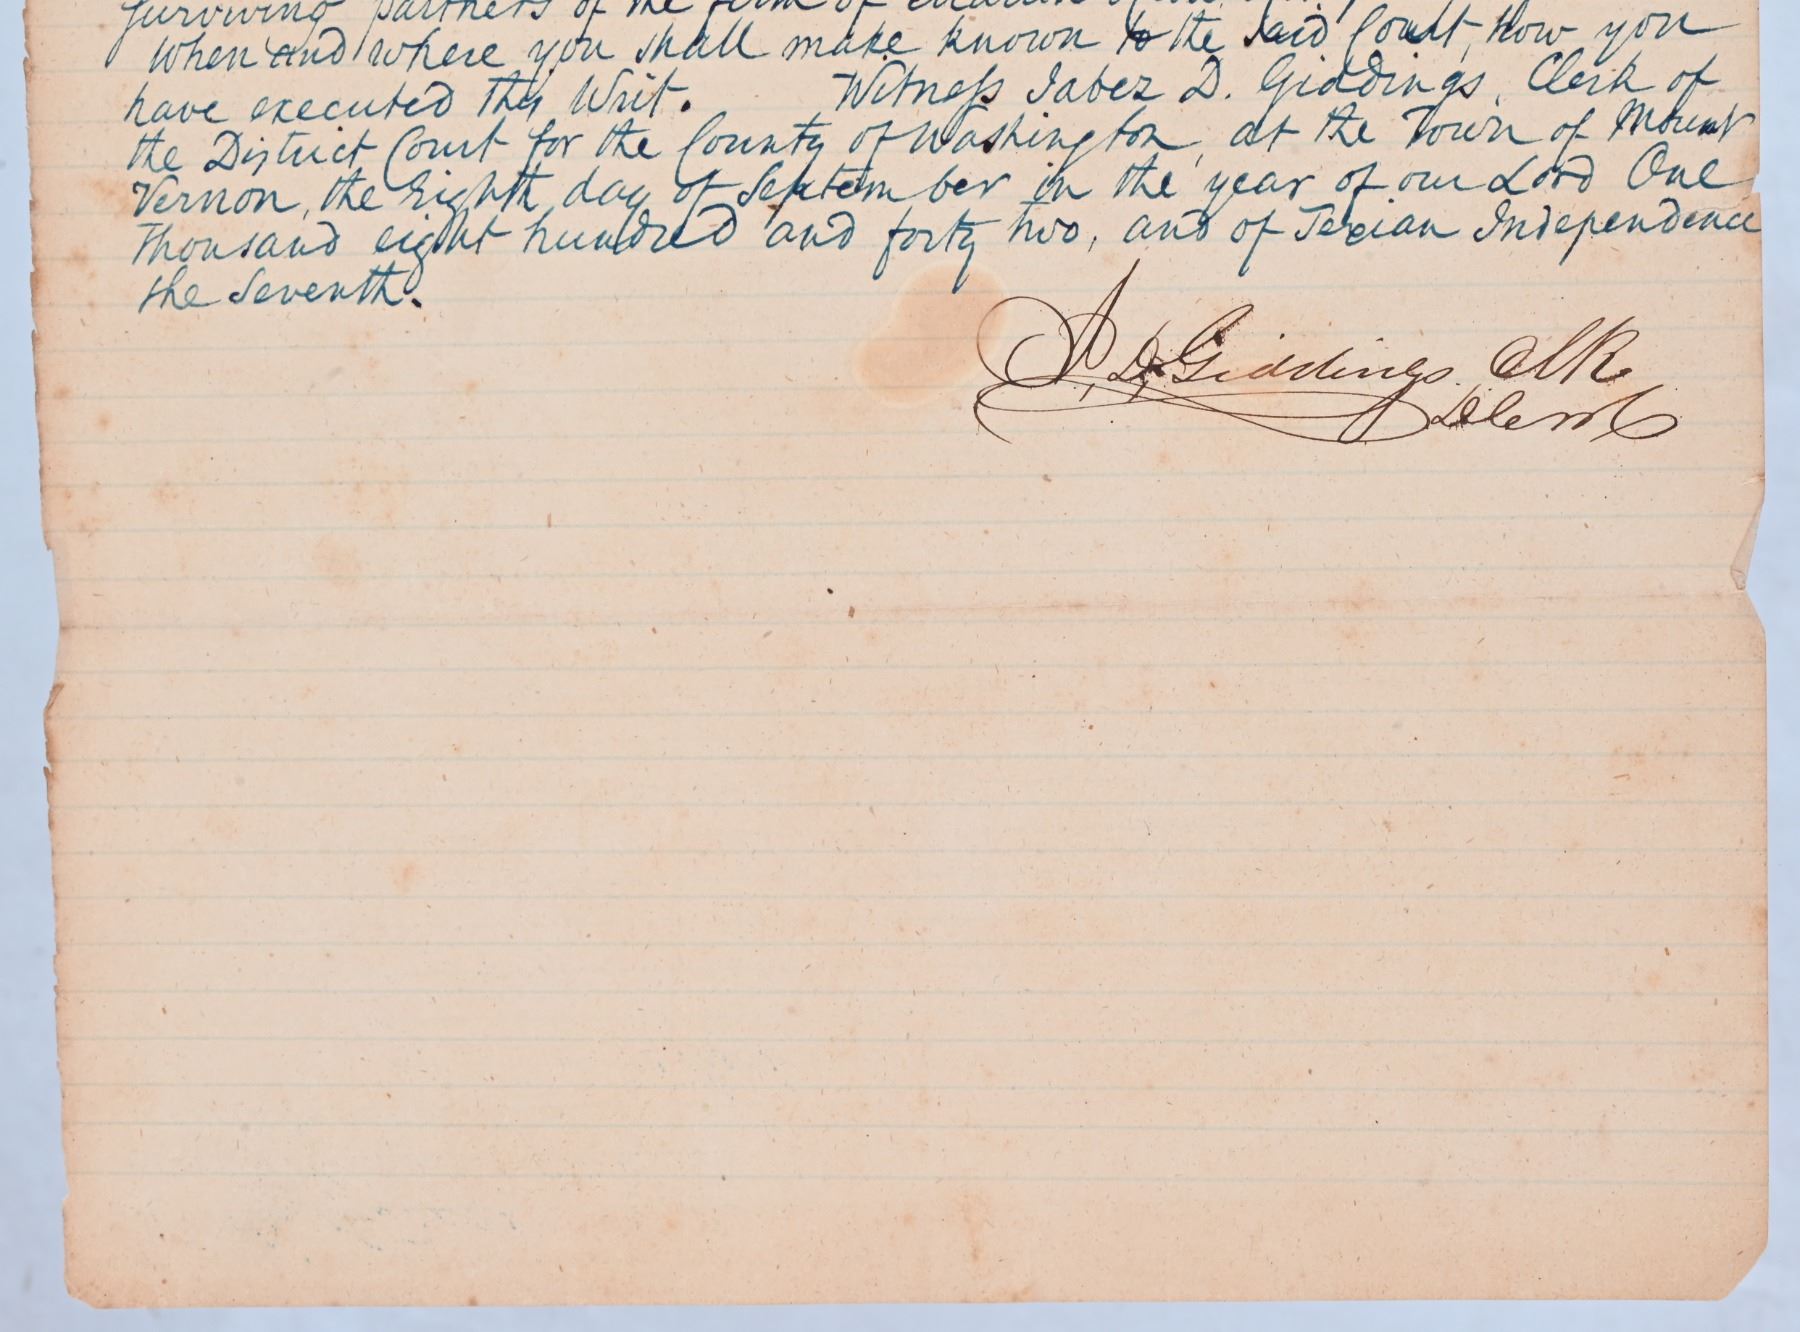 surviving partners of the firm of
when and where you shall make known to the said Court, how you
have executed this Writ. Witness Jabez D. Giddings, Clerk of
the District Court for the County of Washington, at the Town of Mount
Vernon, the Eighth day of September in the year of our Lord One
Thousand eight hundred and forty two, and of Texian Independence
the Seventh.
J. D. Giddings, Clk